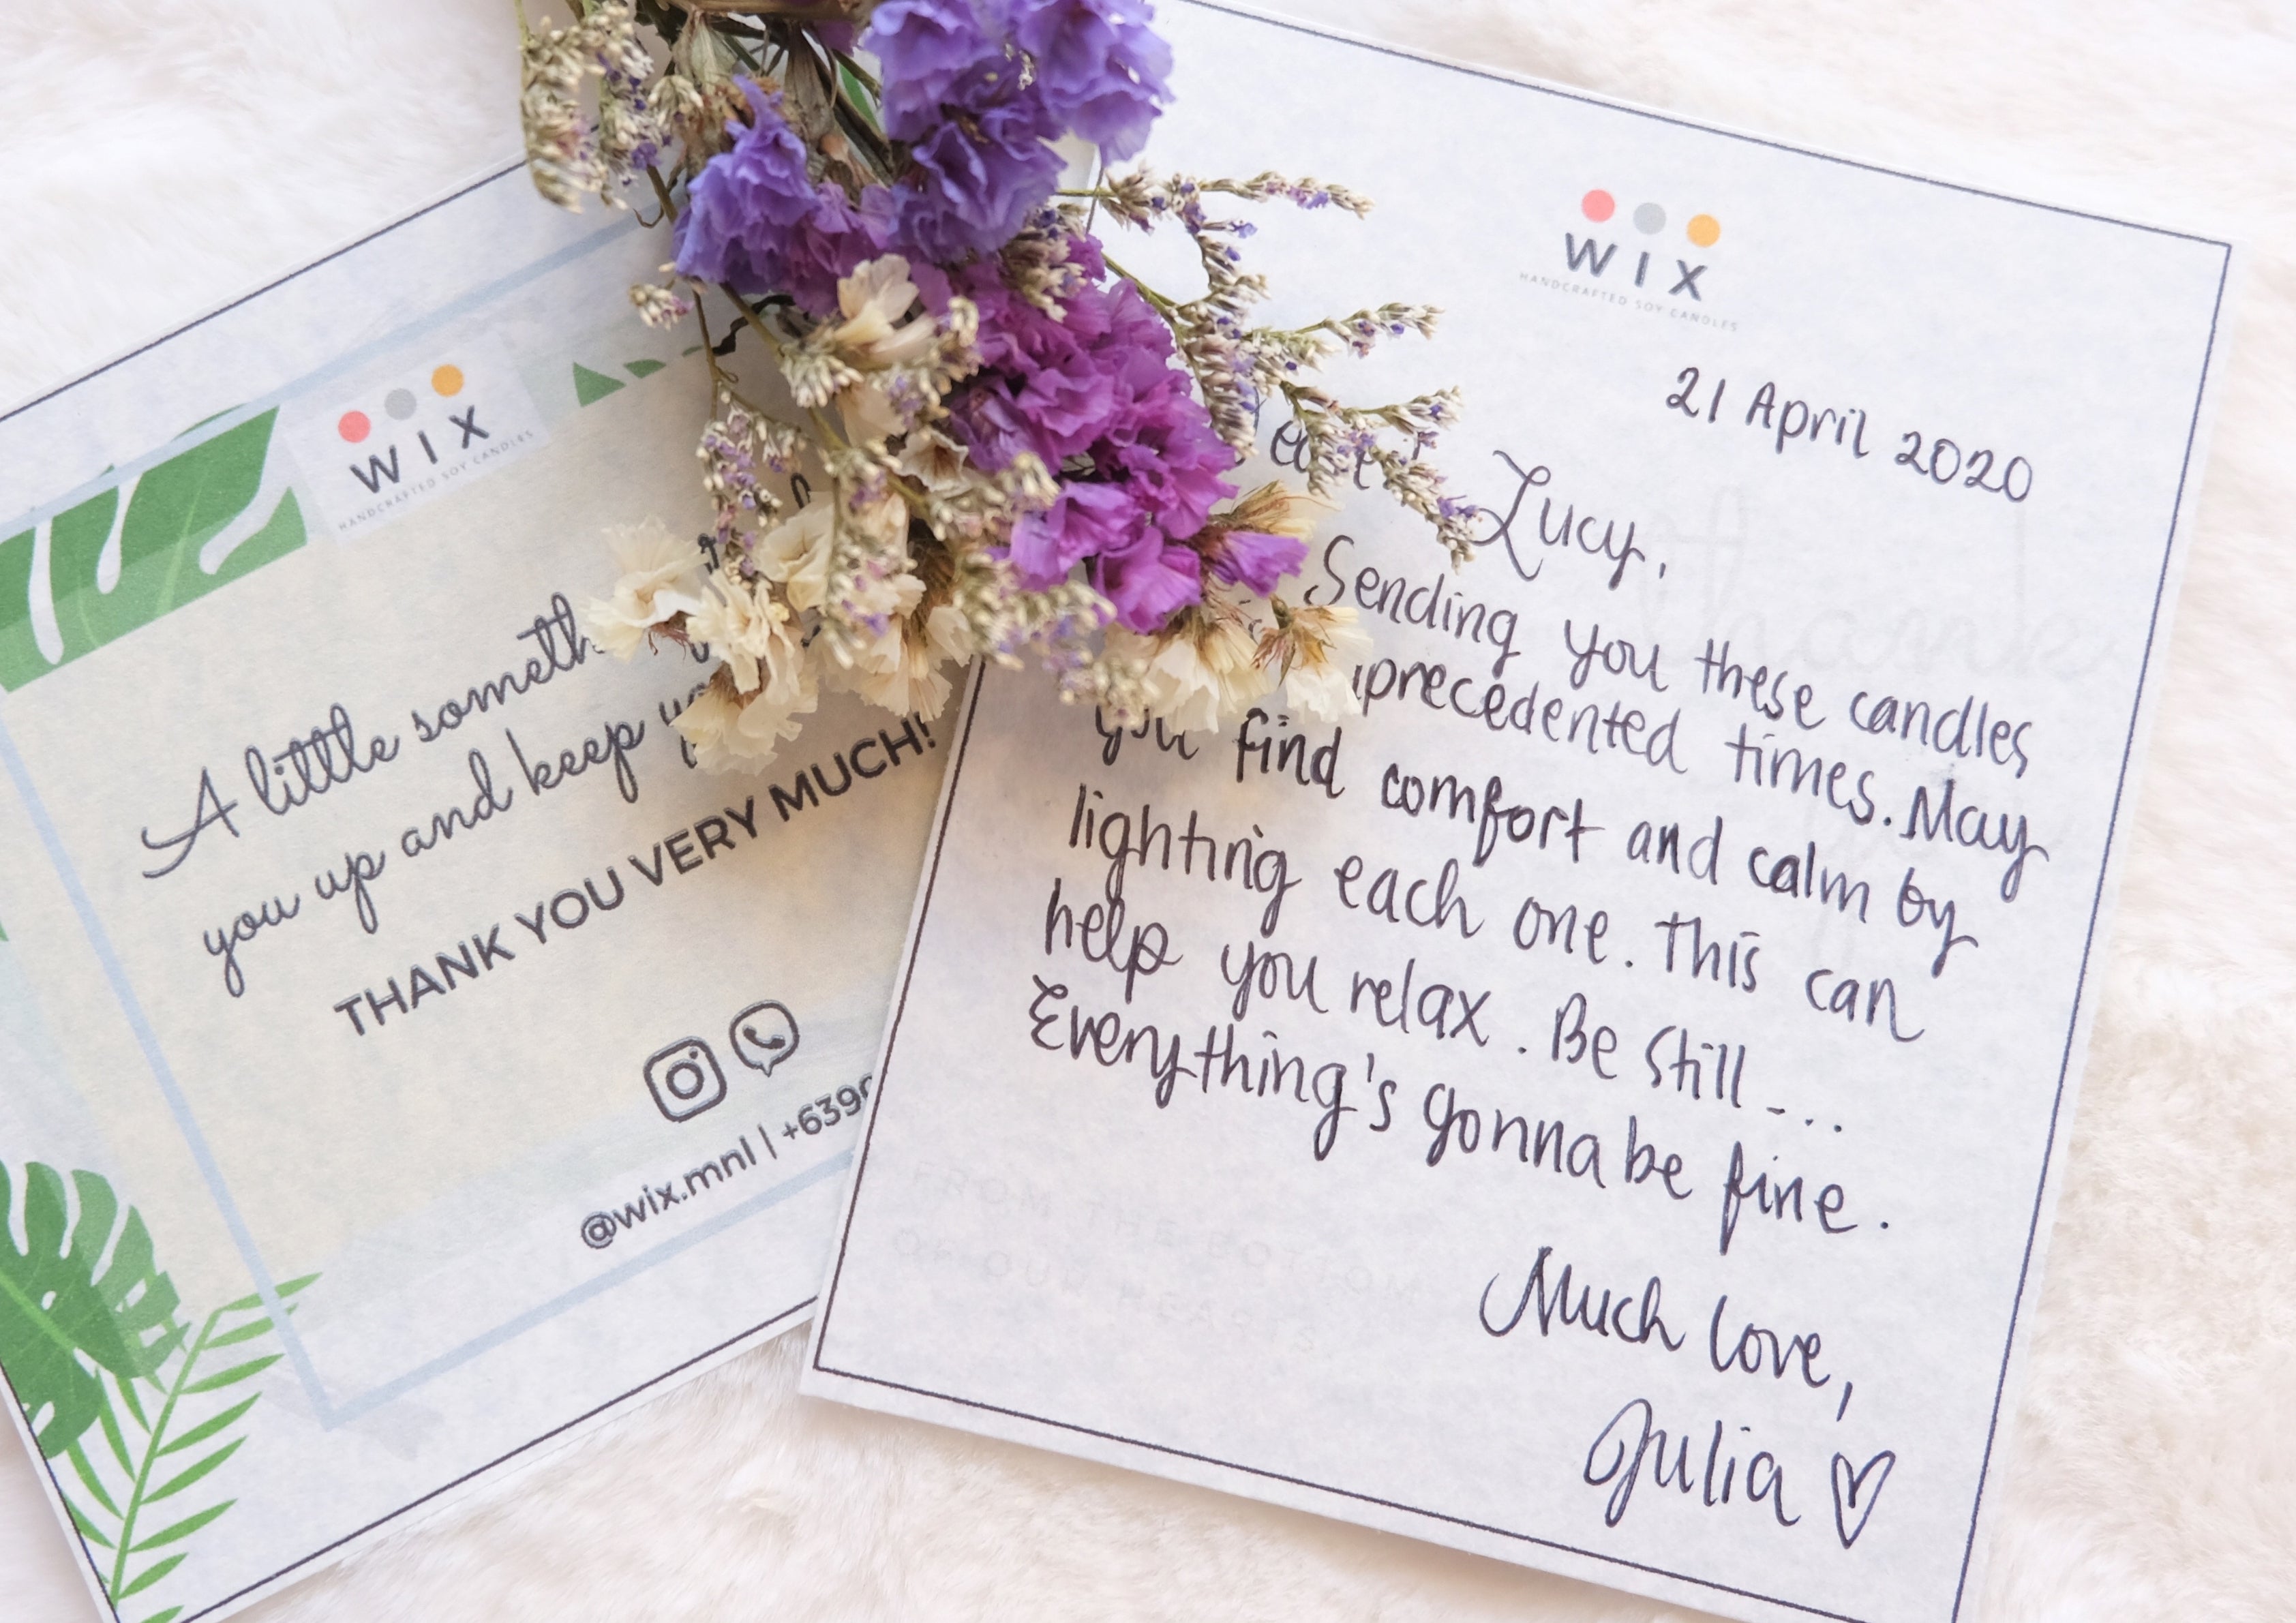 WIX
HANDCRAFTED SOY CANDLES
A little someth
you up and keep
THANK YOU VERY MUCH!
@wix.mnl | +639
WIX
HANDCRAFTED SOY CANDLES
21 April 2020
Lucy,
Sending you these candles
precedented times. May
you find comfort and calm by
lighting each one. This can
help you relax. Be still...
Everything's gonna be fine.
Much love,
Julia